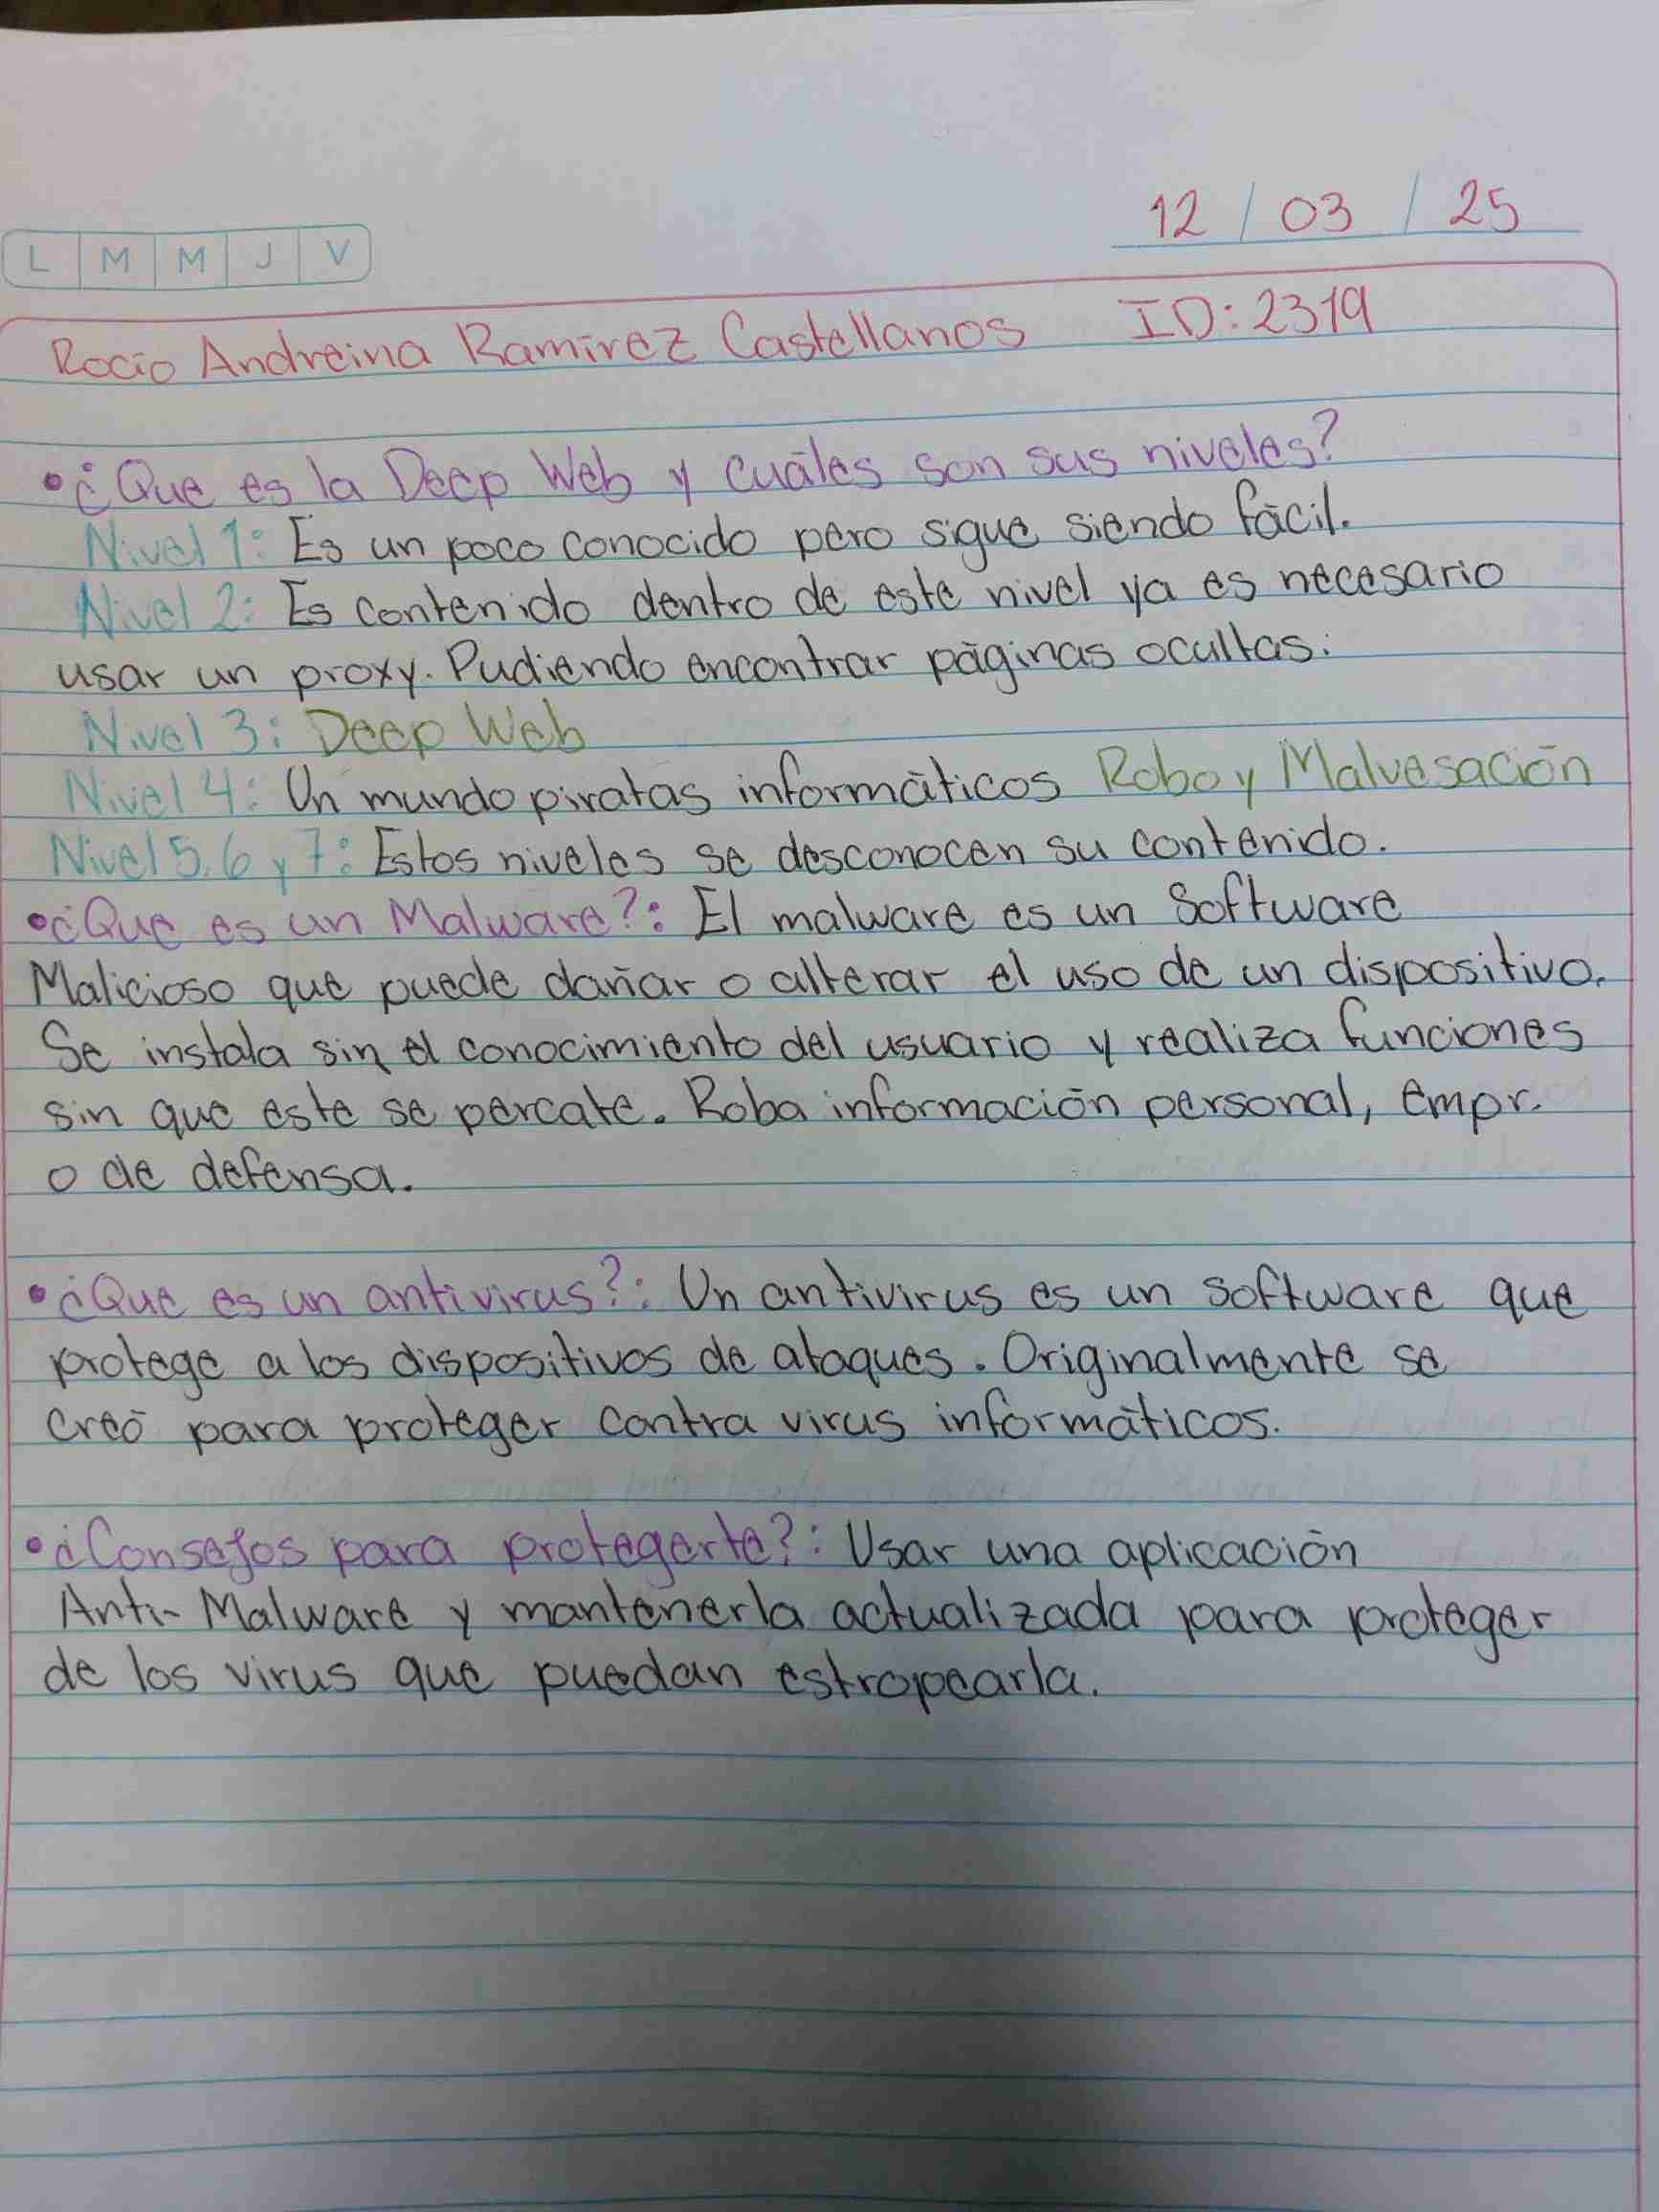 12 / 03 / 25
L M M J V
Rocio Andreina Ramirez Castellanos ID: 2319
• ¿Que es la Deep Web y cuáles son sus niveles?
Nivel 1: Es un poco conocido pero sigue siendo fácil.
Nivel 2: Es contenido dentro de este nivel ya es necesario
usar un proxy. Pudiendo encontrar páginas ocultas.
Nivel 3: Deep Web
Nivel 4: Un mundo piratas informáticos Robo y Malvesación
Nivel 5, 6 y 7: Estos niveles se desconocen su contenido.
• ¿Que es un Malware?: El malware es un Software
Malicioso que puede dañar o alterar el uso de un dispositivo.
Se instala sin el conocimiento del usuario y realiza funciones
sin que este se percate. Roba información personal, empr.
o de defensa.
• ¿Que es un antivirus?: Un antivirus es un software que
protege a los dispositivos de ataques. Originalmente se
creó para proteger contra virus informáticos.
• ¿Consejos para protegerte?: Usar una aplicación
Anti-Malware y mantenerla actualizada para proteger
de los virus que puedan estropearla.